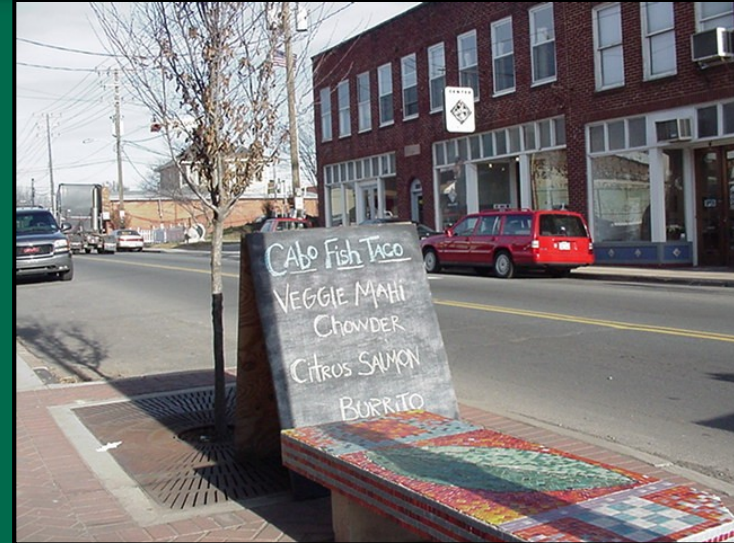 Cabo Fish Taco
VEGGIE MAHI
CHOWDER
CitRus SALMON
BURRITO
CENTER